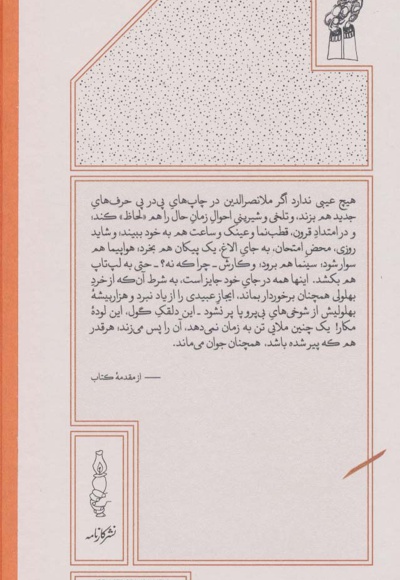 هیچ عیبی ندارد اگر ملانصرالدین در چاپ‌های پی‌در پی حرف‌های
جدید هم بزند، و تلخی و شیرینیِ احوالِ زمانِ حال را هم «لحاظ» کند؛
و در امتدادِ قرون، قطب‌نما و عینک و ساعت هم به خود ببیند؛ و شاید
روزی، محضِ امتحان، به جای الاغ، یک پیکان هم بخرد؛ هواپیما هم
سوار شود؛ سینما هم برود؛ و کارش ـ چرا که نه؟ ـ حتی به لپ‌تاپ
هم بکشد. اینها همه در جای خود جایز است، به شرط آن‌که از خردِ
بهلولی همچنان برخوردار بماند، ایجازِ عبیدی را از یاد نبرد و هزاربیشهٔ
بهلولیش از شوخی‌های بی‌پروپا پر نشود ـ این دلقکِ گول، این لودهٔ
مکار! یک چنین ملایی تن به زمان نمی‌دهد، آن را پس می‌زند؛ هرقدر
هم که پیر شده باشد، همچنان جوان می‌ماند.
— از مقدمهٔ کتاب
نشر کارنامه